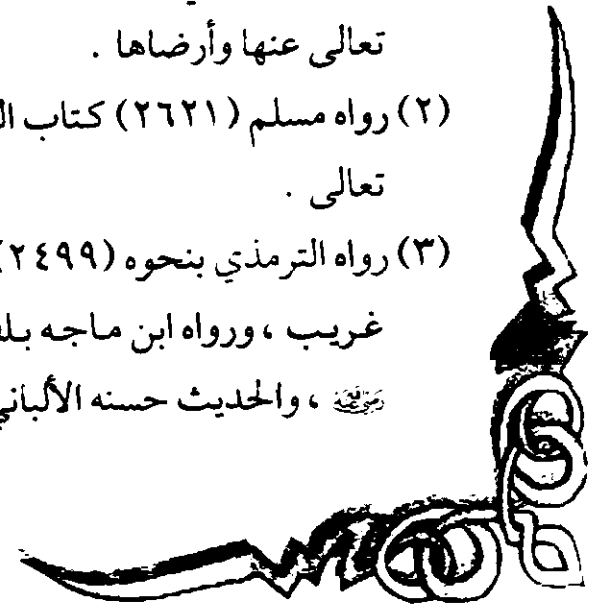 تعالى عنها وأرضاها .
(٢) رواه مسلم (٢٦٢١) كتاب
تعالى .
(٣) رواه الترمذي بنحوه (٢٤٩٩)
غريب ، ورواه ابن ماجه
رضي الله عنه ، والحديث حسنه الألباني